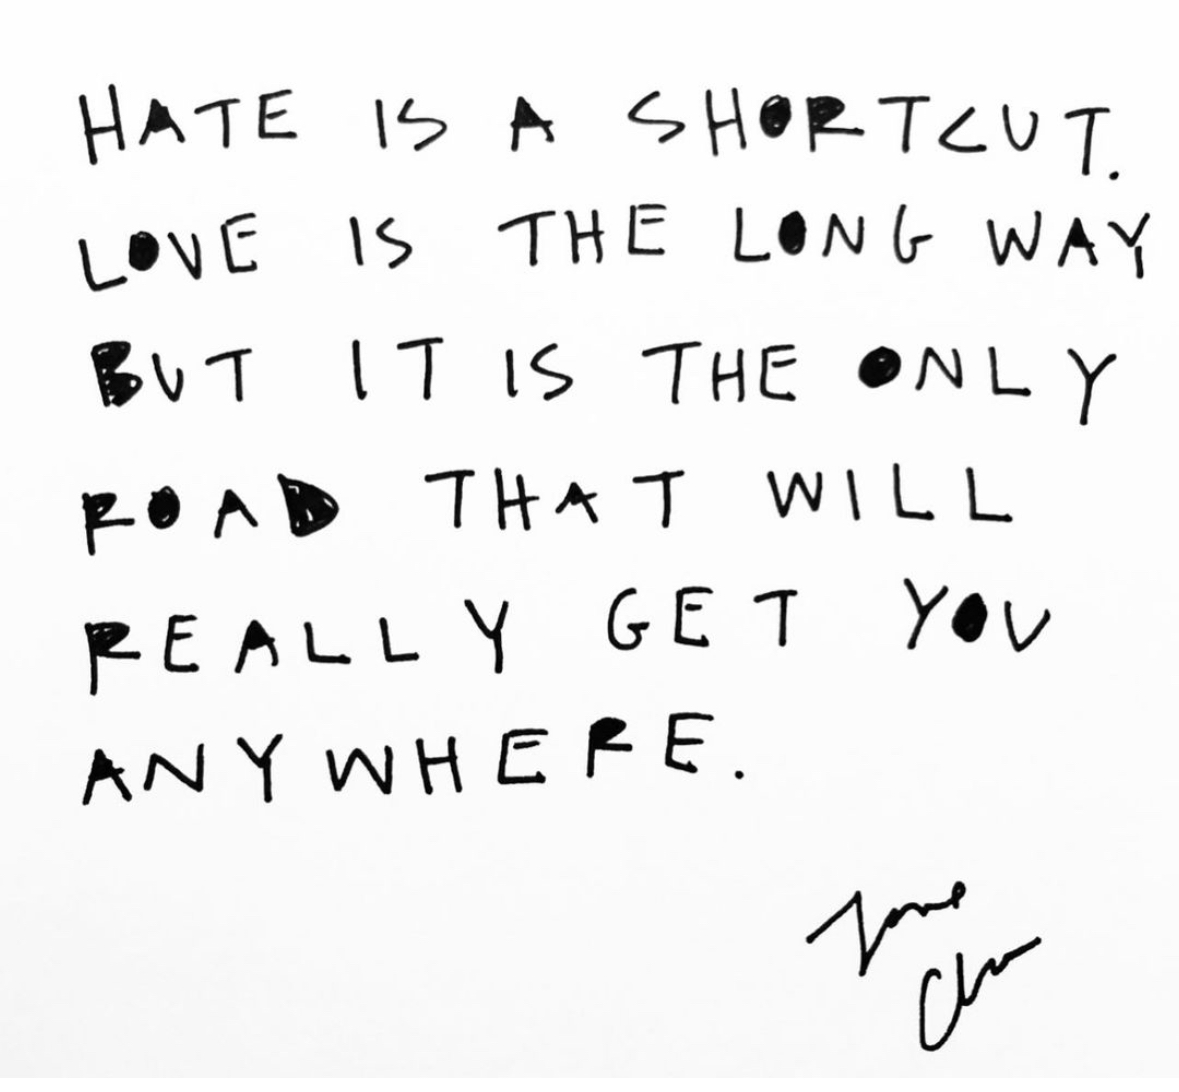 HATE IS A SHORTCUT.
LOVE IS THE LONG WAY
BUT IT IS THE ONLY
ROAD THAT WILL
REALLY GET YOU
ANYWHERE.